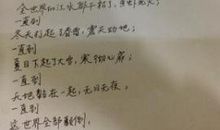 全世界的江水都干枯了，
一直到
冬天打起了春雷，震天动地；
一直到
夏日下起了大雪，寒彻心扉；
一直到
天地黏在一起，无日无夜，
一直到
这世界全部颠倒，